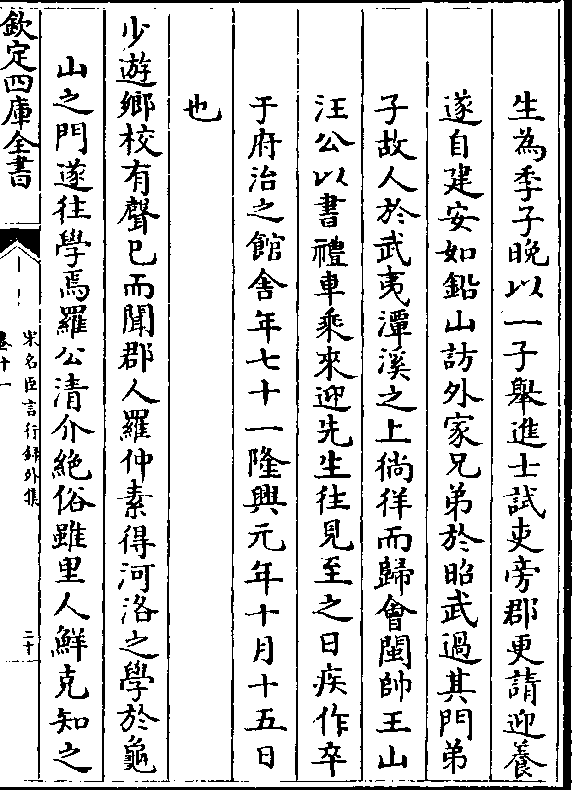 生為季子晚以一子舉進士試吏旁郡更請迎養
遂自建安如鉛山訪外家兄弟於昭武過其門弟
子故人於武夷潭溪之上徜徉而歸會閩帥王山
汪公以書禮車乘來迎先生往見至之日疾作卒
于府治之館舍年七十一隆興元年十月十五日
也
少遊鄉校有聲已而聞郡人羅仲素得河洛之學於龜
山之門遂往學焉羅公清介絶俗雖里人鮮克知之
欽定四庫全書
宋名臣言行録外集
卷十一
二十